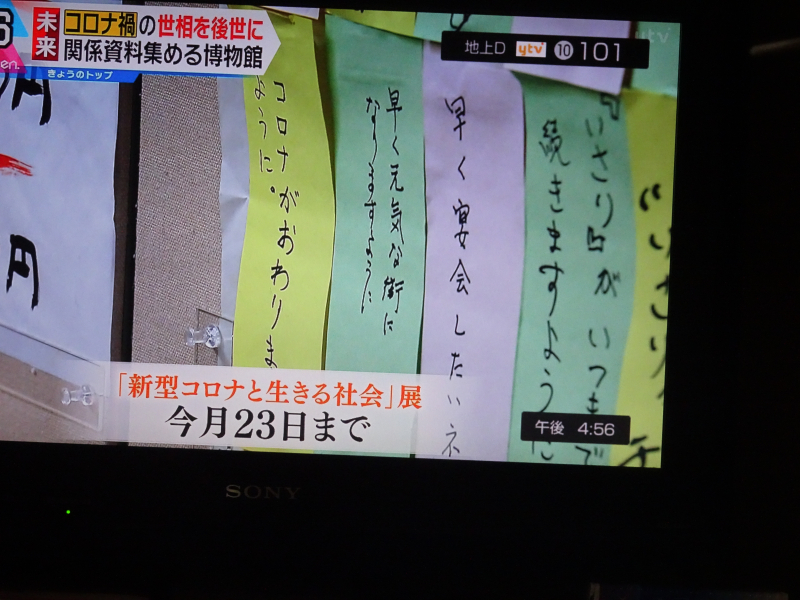 未来
コロナ禍の世相を後世に
関係資料集める博物館
きょうのトップ
en.
地上D ytv 10 101
ytv
『いさり日がいつまで
続きますように
早く宴会したいネ
早く元気な街に
なりますように
コロナがおわりま
ように。
円
円
「新型コロナと生きる社会」展
今月23日まで
午後 4:56
SONY